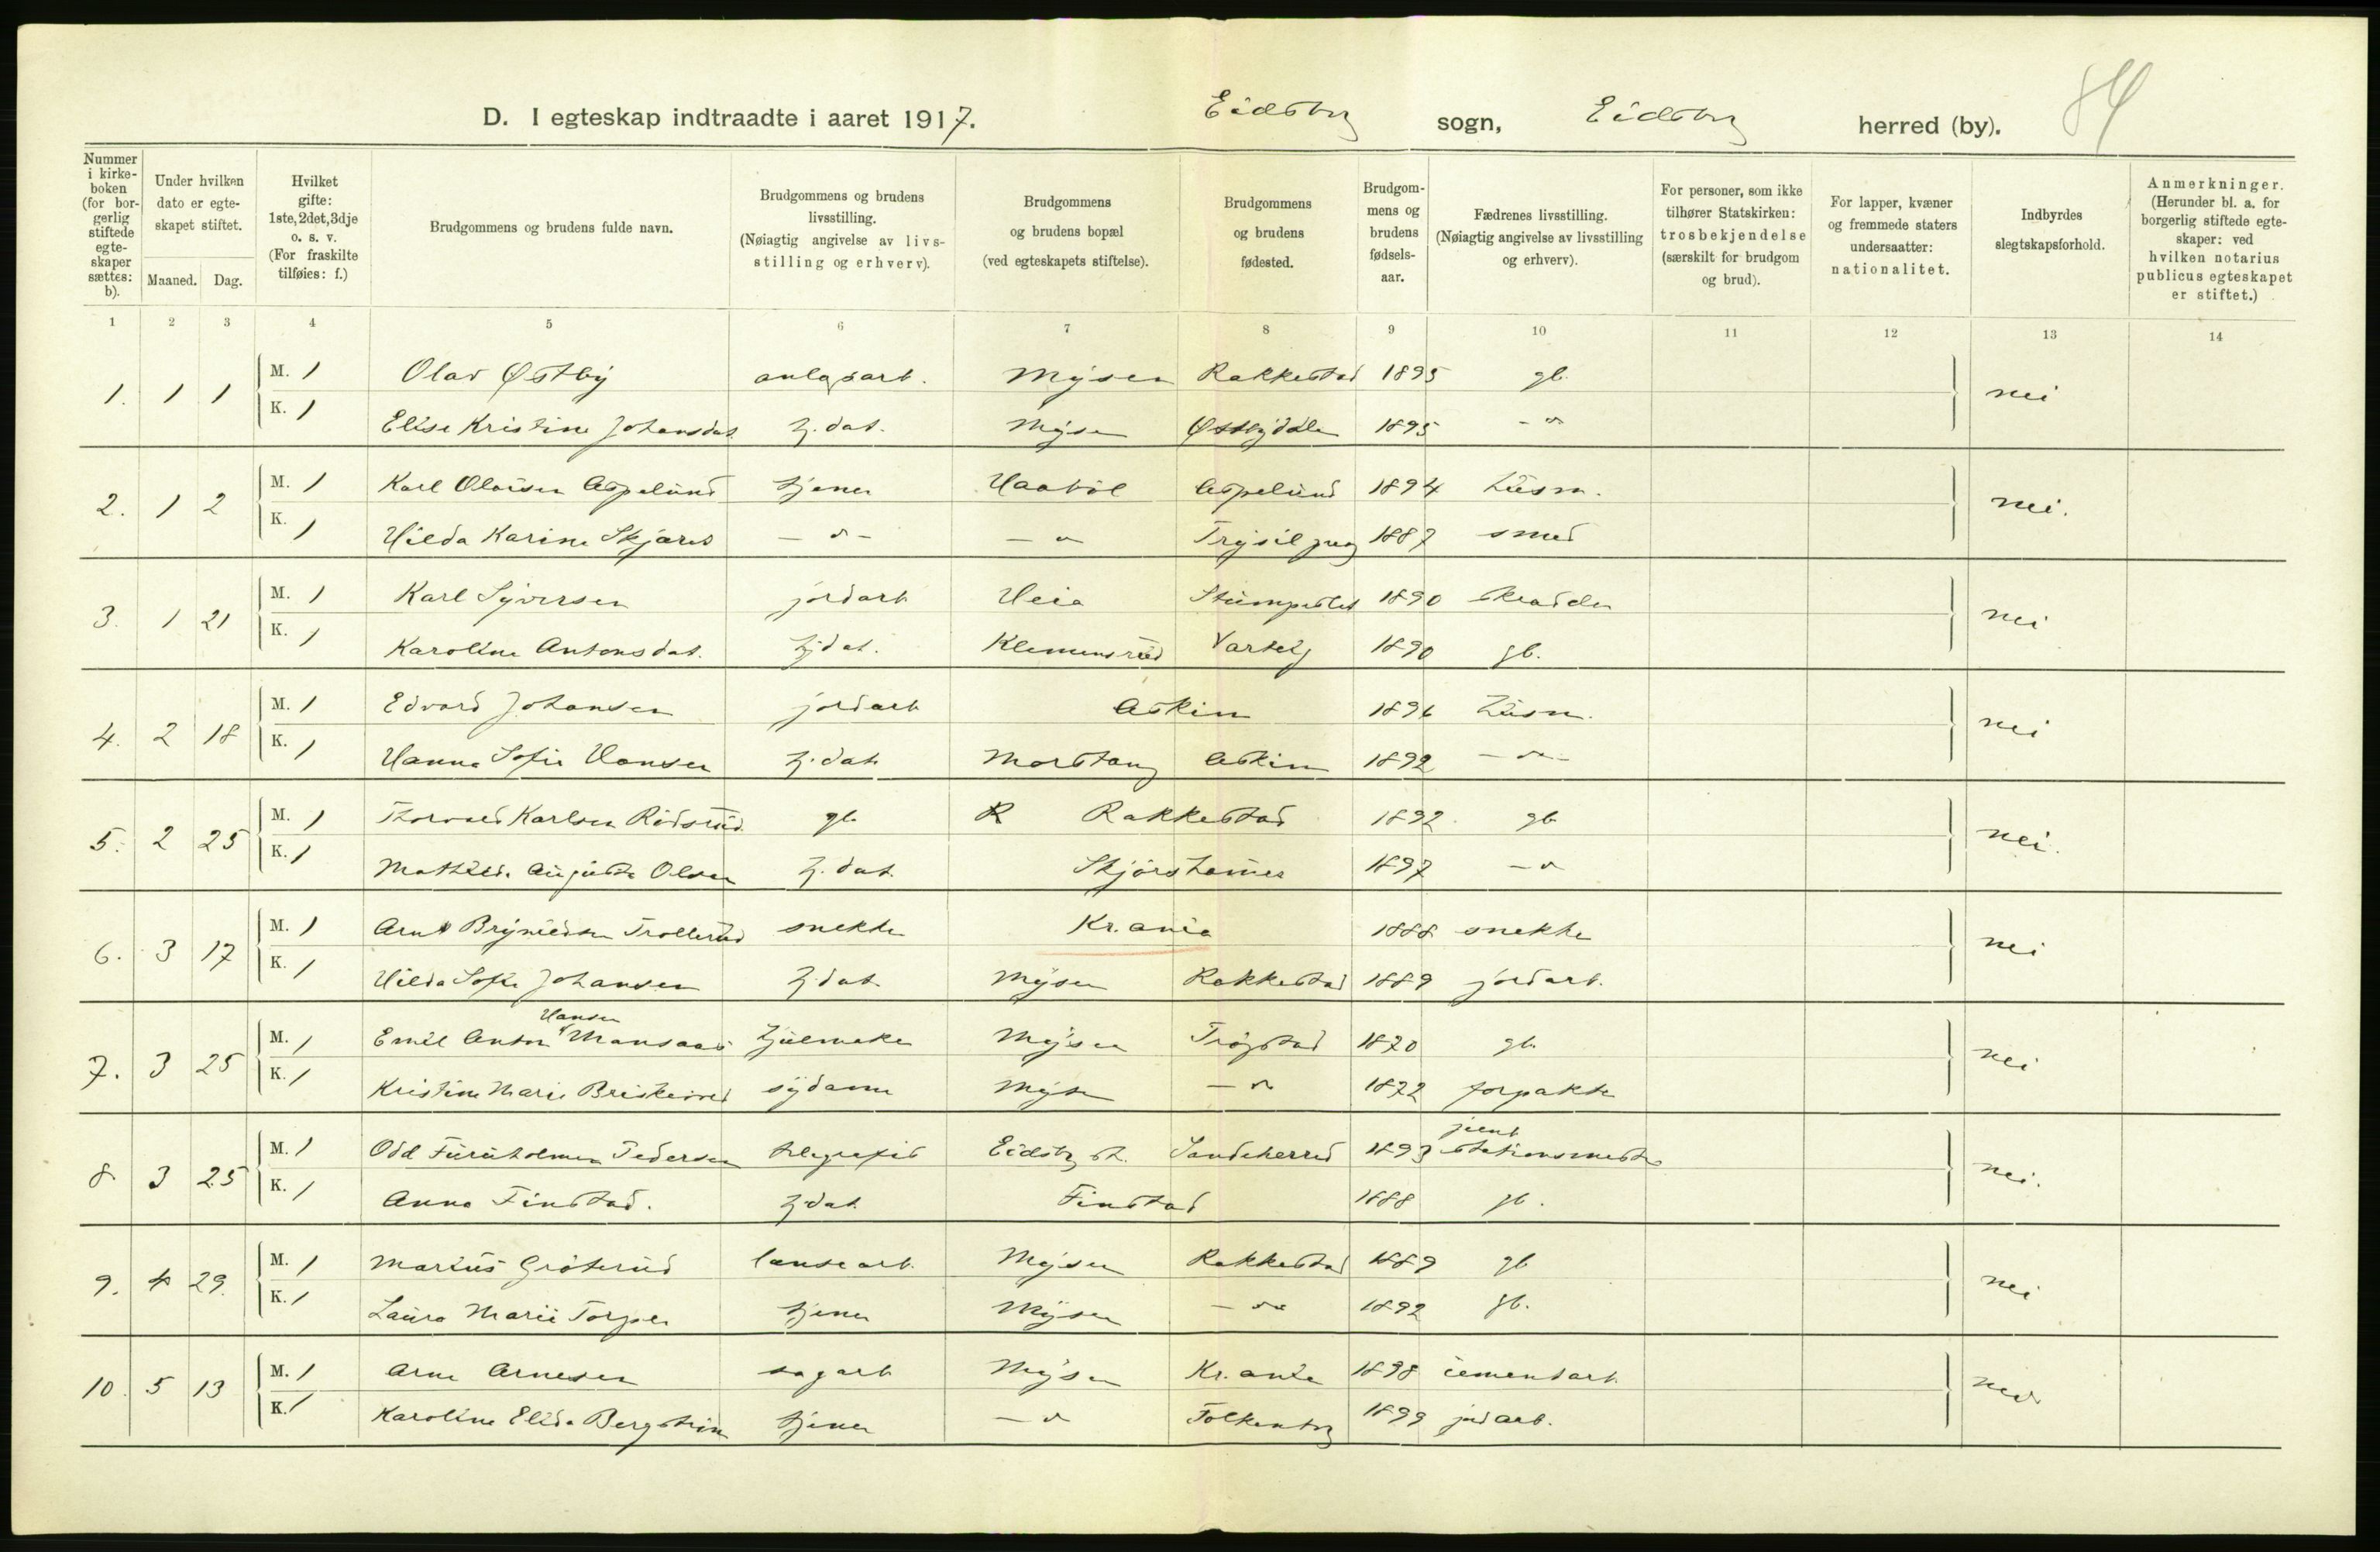 84
D. I egteskap indtraadte i aaret 1917. Eidsbrg sogn, Eidsbrg herred (by).
Nummer i kirke-boken (for bor-gerlig stiftede egte-skaper sættes: b).
Under hvilken dato er egte-skapet stiftet.
Maaned. Dag.
Hvilket gifte: 1ste, 2det, 3dje o. s. v. (For fraskilte tilføies: f.)
Brudgommens og brudens fulde navn.
Brudgommens og brudens livsstilling. (Nøiagtig angivelse av livs-stilling og erhverv).
Brudgommens og brudens bopæl (ved egteskapets stiftelse).
Brudgommens og brudens fødested.
Brudgom-mens og brudens fødsels-aar.
Fædrenes livsstilling. (Nøiagtig angivelse av livsstilling og erhverv).
For personer, som ikke tilhører Statskirken: trosbekjendelse (særskilt for brudgom og brud).
For lapper, kvæner og fremmede staters undersaatter: nationalitet.
Indbyrdes slegtskapsforhold.
Anmerkninger. (Herunder bl. a. for borgerlig stiftede egte-skaper: ved hvilken notarius publicus egteskapet er stiftet.)
1 2 3 4 5 6 7 8 9 10 11 12 13 14
1. 1 1 M. 1 Olav Østby anlegsarb. Mysen Rakkestad 1895 gb. nei
K. 1 Elise Kristine Johansdat. hj. dat. Mysen 1895 - " -
2. 1 2 M. 1 Karl Olaisen Aspelund tjener Haabøl Aspelund 1894 husm. nei.
K. 1 Hilda Karine - " - - " - 1887 smed
3. 1 21 M. 1 Karl Syversen jordarb Heia 1890 skrædder nei
K. 1 Karoline Antonsdat. hj dat. Klemensrud Varteig 1890 gb.
4. 2 18 M. 1 Edvard Johansen jordarb Askim 1896 husm. nei
K. 1 Hanna Sofie Hansen hj. dat. Morstong Askim 1892 - " -
5. 2 25 M. 1 Thorvald Karlsen Rødsrud gb. R Rakkestad 1892 gb nei.
K. 1 Mathilde Augusta Olsen hj. dat. 1897 - " -
6. 3 17 M. 1 Trollerud snekker Kr.ania 1888 snekker nei
K. 1 Hilda Sofie Johansen hj dat. Mysen Rakkestad 1889 jordarb.
7. 3 25 M. 1 Emil Anton Hansen hjulmaker Mysen Trøgstad 1870 gb. nei
K. 1 Kristine Marie sydame Mysen - " - 1872 forpakter
8 3 25 M. 1 Odd Furuholmen Pedersen telegrafist Eidsbrg st. Sandeherred 1893 stationsmester nei.
K. 1 Anna Finstad. hj dat. Finstad 1888 gb.
9. 4 29. M. 1 Marius Grøterud Mysen Rakkestad 1889 gb nei
K. 1 Laura Marie Torper tjener Mysen - " - 1892 gb.
10. 5 13 M. 1 Arne Arnesen sagarb Mysen Kr.ania 1898 cementarb. nei
K. 1 Karoline Elida tjener - " - 1899 jordarb.